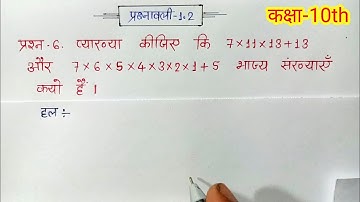 प्रश्नावली-1.2
कक्षा-10th
प्रश्न-6. व्याख्या कीजिए कि 7×11×13+13
और 7×6×5×4×3×2×1+5 भाज्य संख्याएँ
क्यों हैं।
हल ÷